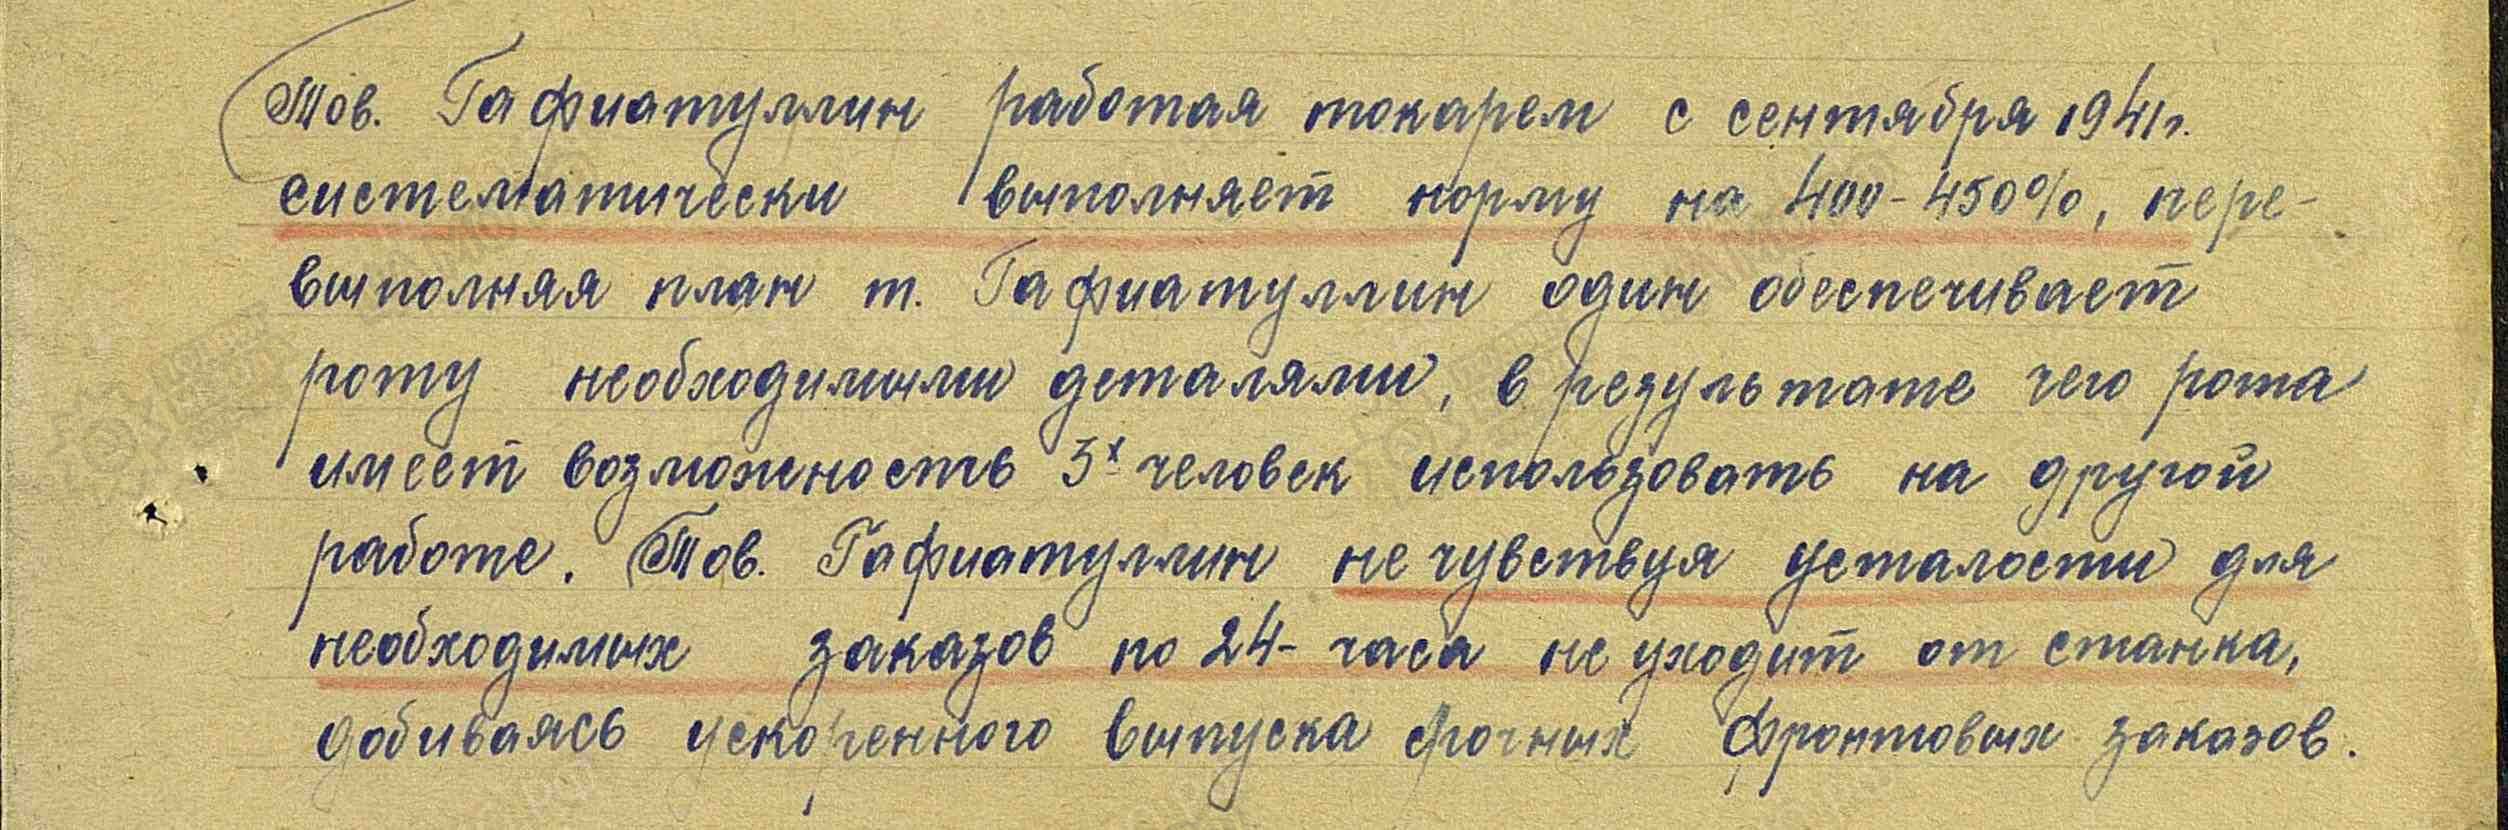 Тов. Гафиатуллин работая токарем с сентября 1941г.
систематически выполняет норму на 400-450%, пере-
выполняя план т. Гафиатуллин один обеспечивает
роту необходимыми деталями, в результате чего рота
имеет возможность 3х человек использовать на другой
работе. Тов. Гафиатуллин не чувствуя усталости для
необходимых заказов по 24- часа не уходит от станка,
добиваясь ускоренного выпуска срочных фронтовых заказов.